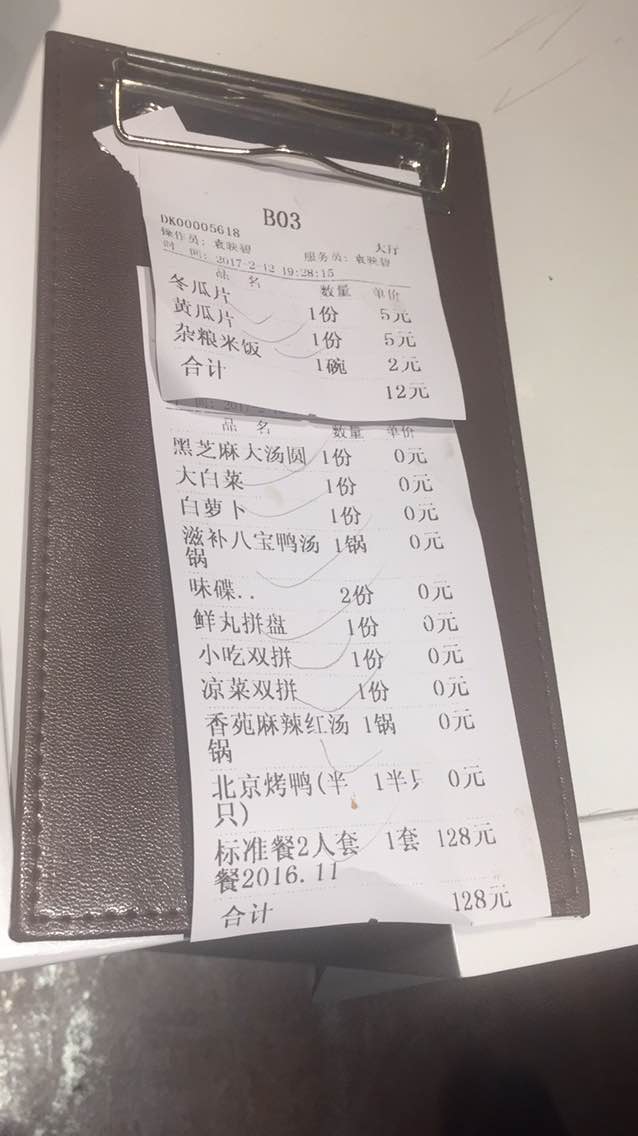 B03
DK00005618 大厅
操作员: 袁映碧 服务员: 袁映碧
时 间: 2017-2-12 19:28:15
品 名 数量 单价
冬瓜片 1份 5元
黄瓜片 1份 5元
杂粮米饭 1碗 2元
合计 12元
品 名 数量 单价
黑芝麻大汤圆 1份 0元
大白菜 1份 0元
白萝卜 1份 0元
滋补八宝鸭汤 1锅 0元
锅
味碟.. 2份 0元
鲜丸拼盘 1份 0元
小吃双拼 1份 0元
凉菜双拼 1份 0元
香苑麻辣红汤 1锅 0元
锅
北京烤鸭(半 1半只 0元
只)
标准餐2人套 1套 128元
餐2016.11
合计 128元